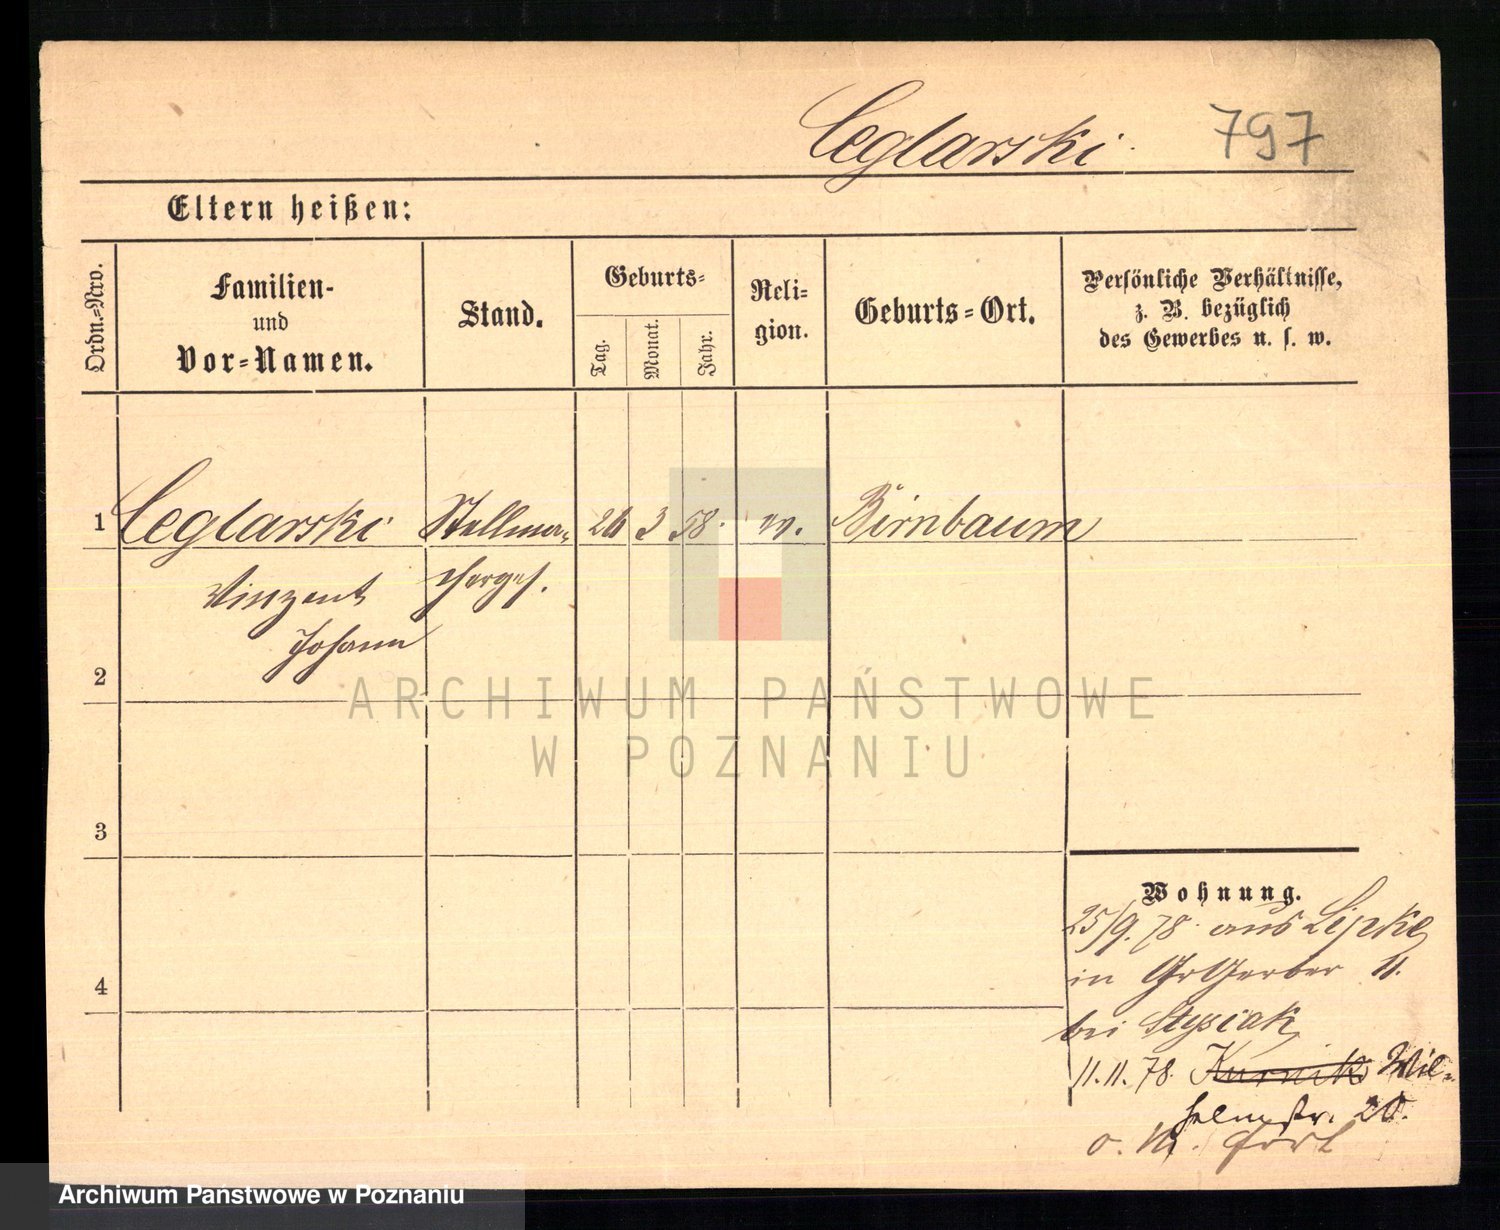 Ceglarski 797
Eltern heißen:
Ordn.=Nro.
Familien-
und
Vor=Namen.
Stand.
Geburts=
Tag.
Monat.
Jahr.
Reli=
gion.
Geburts=Ort.
Persönliche Verhältnisse,
z. B. bezüglich
des Gewerbes u. s. w.
1 Ceglarski Stellma- 26 3 58. Birnbaum
Vinzent cherges.
Johann
2
ARCHIWUM PAŃSTWOWE
W POZNANIU
3
Wohnung.
25/9. 78. aus Lipke
in Gr Gerber 11.
4
bei Stysiak
11.11.78. Kurnik Wil-
helmstr. 20.
o. M. fort
Archiwum Państwowe w Poznaniu